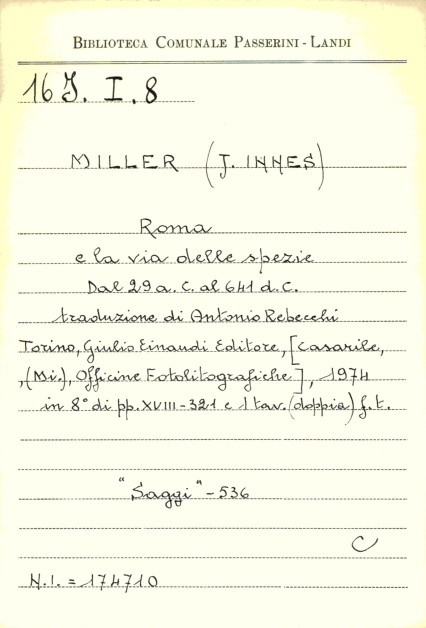 BIBLIOTECA COMUNALE PASSERINI-LANDI
16 J. I. 8
MILLER (J. INNES)
Roma
e la via delle spezie
Dal 29 a. C. al 641 d. C.
traduzione di Antonio Rebecchi
Torino, Giulio Einaudi Editore, [Casarile,
,(Mi.), Officine Fotolitografiche], 1974
in 8° di pp. XVIII-321 e 1 tav. (doppia) f. t.
"Saggi" - 536
C
N.I. = 174710